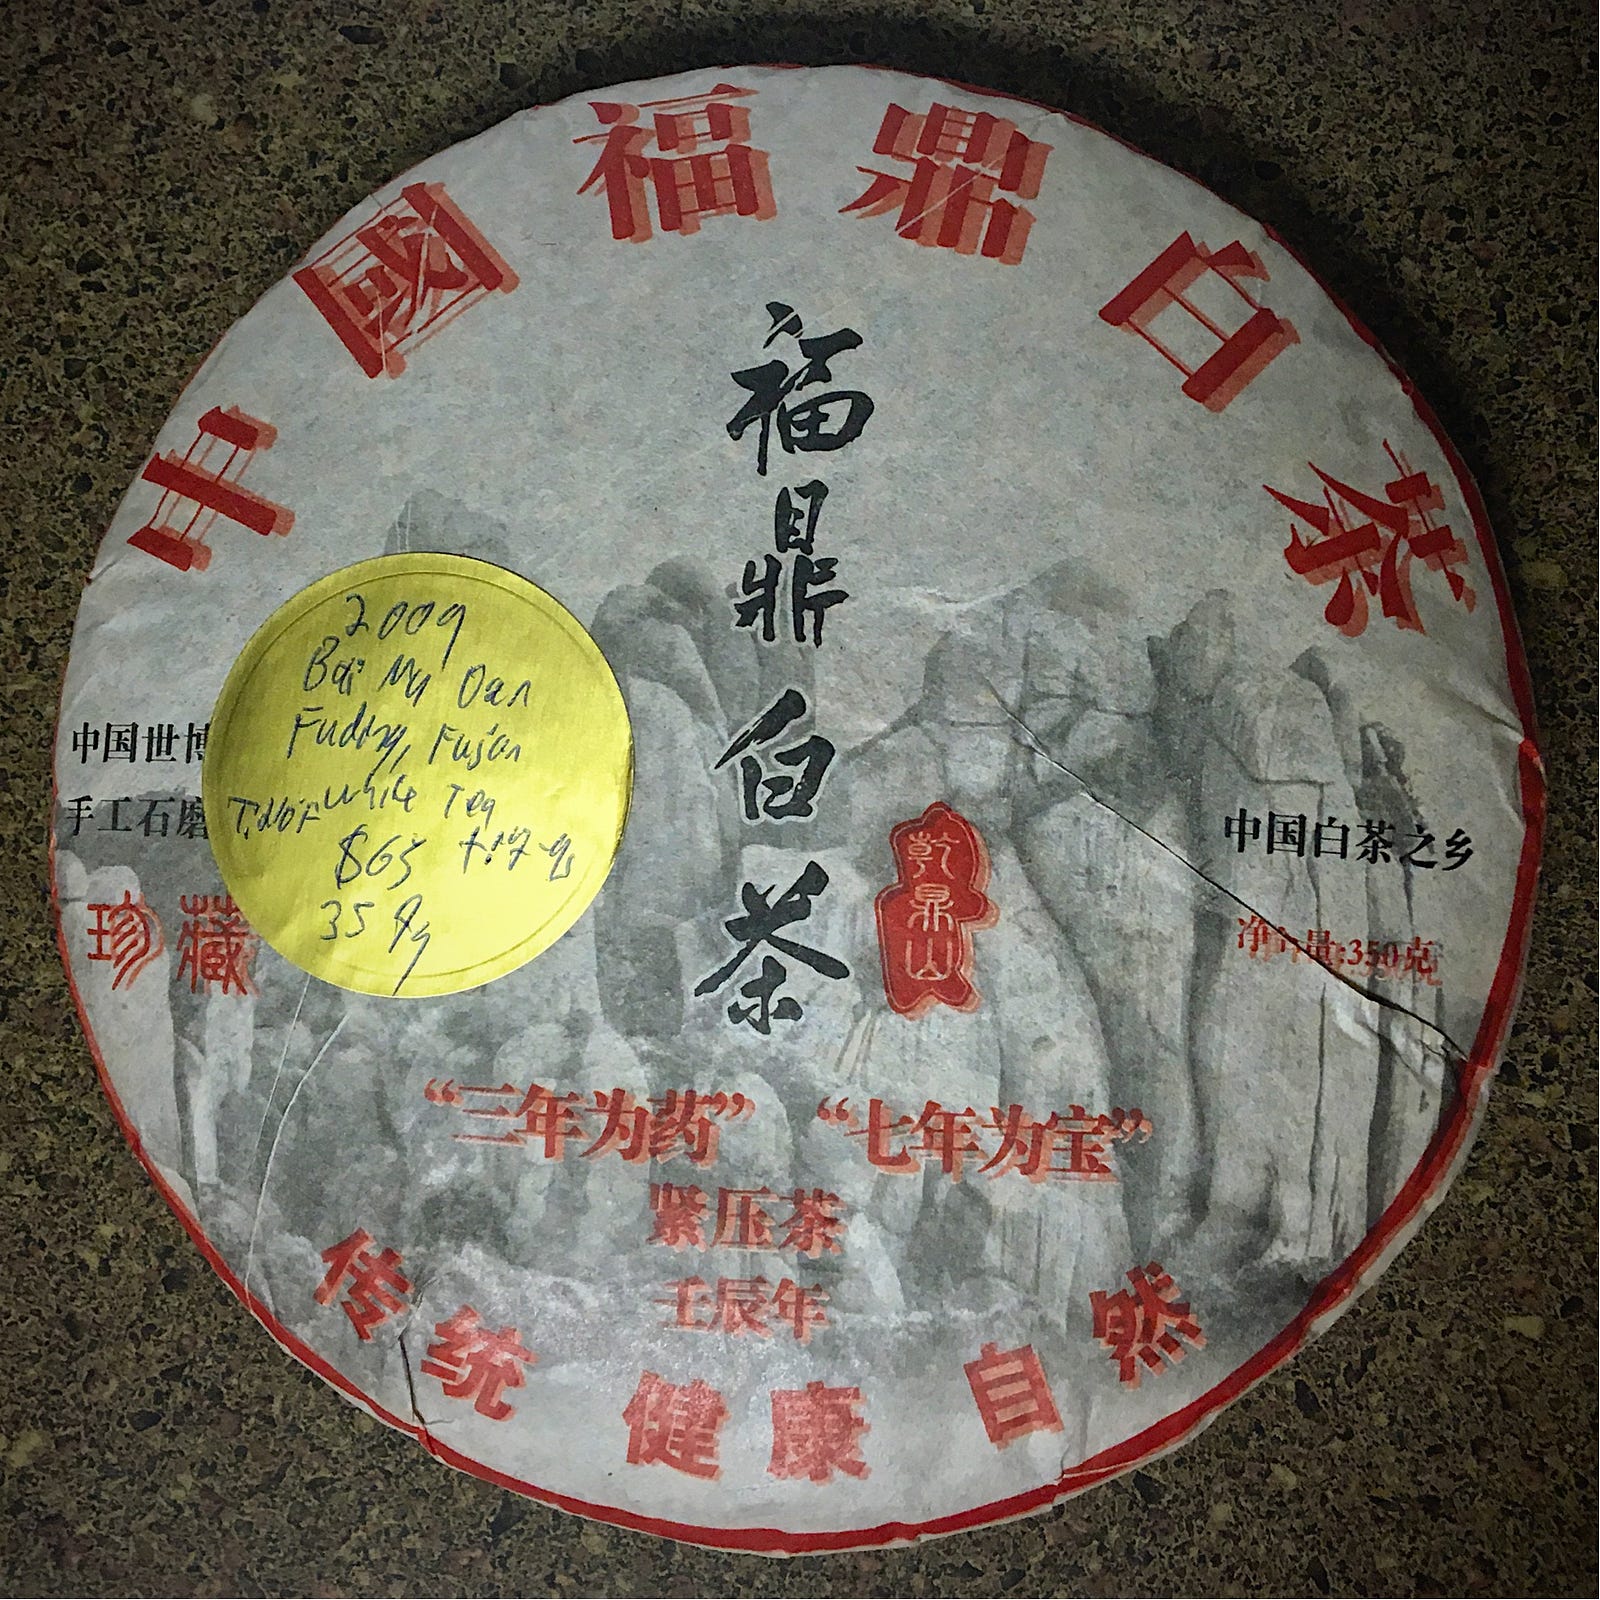 中國福鼎白茶
福鼎白茶
2009
Bai Mu Dan
Fuding, Fujian
White Tea
$65
35
中国世博
手工石磨
珍藏
乾鼎山
中国白茶之乡
净 量:350克
“三年为药” “七年为宝”
紧压茶
壬辰年
传统 健康 自然